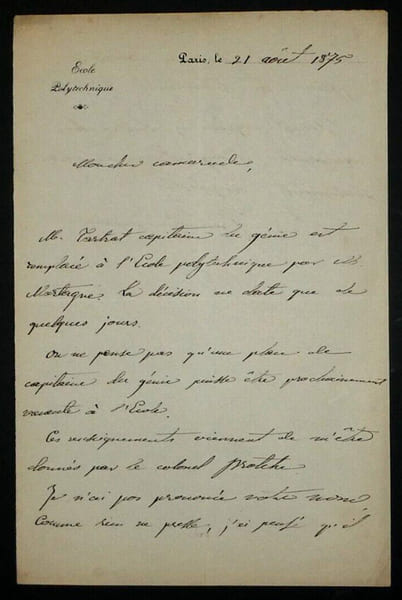 Ecole
Polytechnique
Paris, le 21 août 1875
Mon cher camarade,
M. Tartrat capitaine du génie est
remplacé à l'Ecole polytechnique par M.
Mortagne. La décision ne date que de
quelques jours.
On ne pense pas qu'une place de
capitaine du génie puisse être prochainement
vacante à l'Ecole.
Ces renseignements viennent de m'être
donnés par le colonel
Je n'ai pas prononcé votre nom
Comme rien ne presse, j'ai pensé qu'il